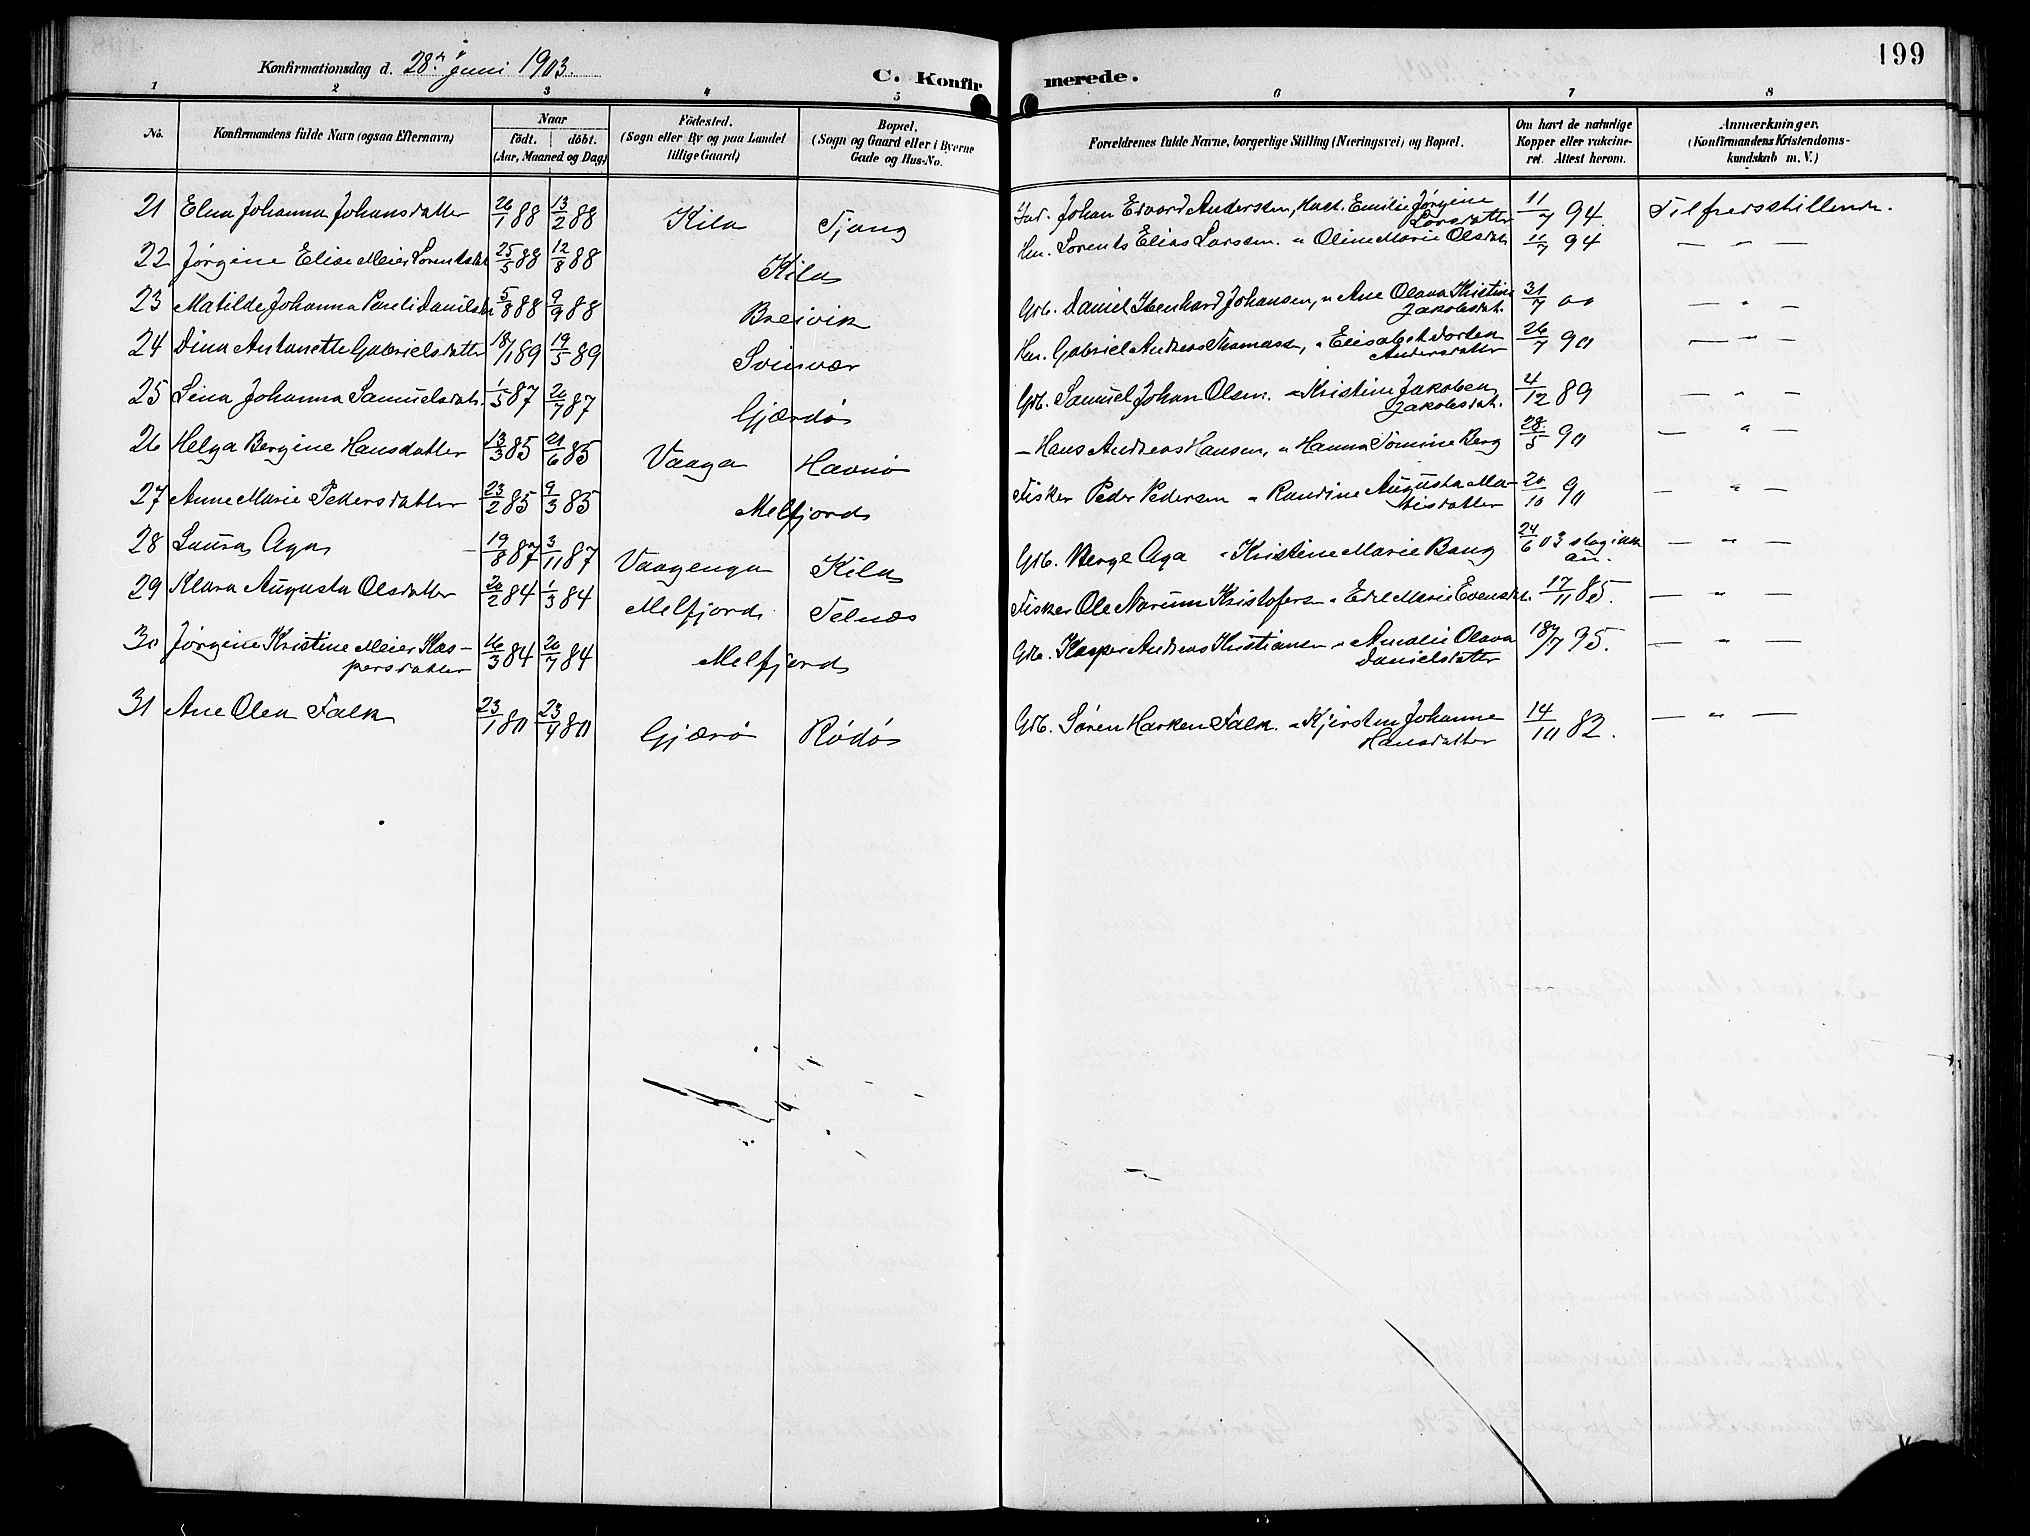 199
Konfirmationsdag d. 28de Juni 1903.
C. Konfirmerede.
1 2 3 4 5 6 7 8
No. Konfirmandens fulde Navn (ogsaa Efternavn) Naar födt. döbt. (Aar, Maaned og Dag) Födested. (Sogn eller By og paa Landet tillige Gaard) Bopæl. (Sogn og Gaard eller i Byerne Gade og Hus-No. Forældrenes fulde Navne, borgerlige Stilling (Næringsvei) og Bopæl. Om havt de naturlige Kopper eller vakcineret. Attest herom. Anmærkninger. (Konfirmandens Kristendomskundskab m. V.)
21 Elna Johanna Johansdatter 26/1 88 13/2 88 Kila Tjong Ind. Johan Edvard Andersen, Hust. Emilie Jørgine Larsdatter 11/7 94. Tilfredsstillende.
22 Jørgine Elise Meier Lorentsdat 25/5 88 12/8 88 Kila Hm. Lorents Elias Larssen. " Oline Marie Olsdat. 11/7 94 — " —
23 Matilde Johanna Pauli Danilsdat 5/8 88 9/9 88 Breivik Grb. Daniel Ibenhard Johansen, " Ane Olava Kristine Jakobsdat. 31/7 00 — " —
24 Dina Antonette Gabrielsdatter 18/1 89 19/5 89 Svinvær Hm. Gabriel Andreas Thomassen, " Elisabet Dortea Andersdatter 26/7 90 — " —
25 Lina Johanna Samuelsdat. 1/5 87 20/7 87 Gjærdø Grb. Samuel Johan Olsen. " Kristine Jakobea Jakobsdat. 4/12 89 — " —
26 Helga Bergine Hansdatter 13/3 85 21/6 85 Vaaga Havnø — Hans Andreas Hansen, " Hanna Tomine Berg 28/5 90 — " —
27 Anne Marie Pedersdatter 23/2 85 9/3 85 Melfjord Fisker Peder Pedersen " Randine Augusta Matisdatter 20/10 90 — " —
28 Laura Aga 19/8 87 3/11 87 Vaagenga Kila Grb. Berge Aga " Kristine Marie Bang 24/6 03 slog ikke an. — " —
29 Klara Augusta Olsdatter 20/2 84 1/3 84 Melfjord Telnes Fisker Ole Narum Kristofers " Edel Marie Evensdat. 17/11 85. — " —
30 Jørgine Kristine Meier Kaspersdatter 16/3 84 20/7 84 Melfjord Grb. Kasper Andreas Kristiansen " Amalie Olava Danielsdatter 18/7 95. — " —
31 Ane Olea Falk 23/1 80 23/9 80 Gjærø Rødø Grb. Søren Harken Falk. " Kjersten Johanne Hansdatter 14/10 82. — " —